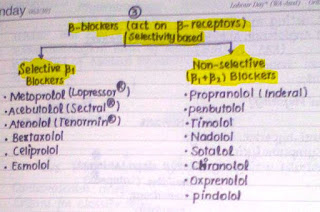 nday
Labour Day* (WA, Aust)
③
β-blockers (act on β-receptors)
Selectivity based
Selective β₁
Blockers
• Metoprolol (Lopressor®)
• Acebutolol (Sectral®)
• Atenolol (Tenormin®)
• Bextaxolol
• Celiprolol
• Esmolol
Non-selective
(β₁+β₂) Blockers
• Propranolol (Inderal)
• penbutolol
• Timolol
• Nadolol
• Sotalol
• Oxprenolol
• pindolol